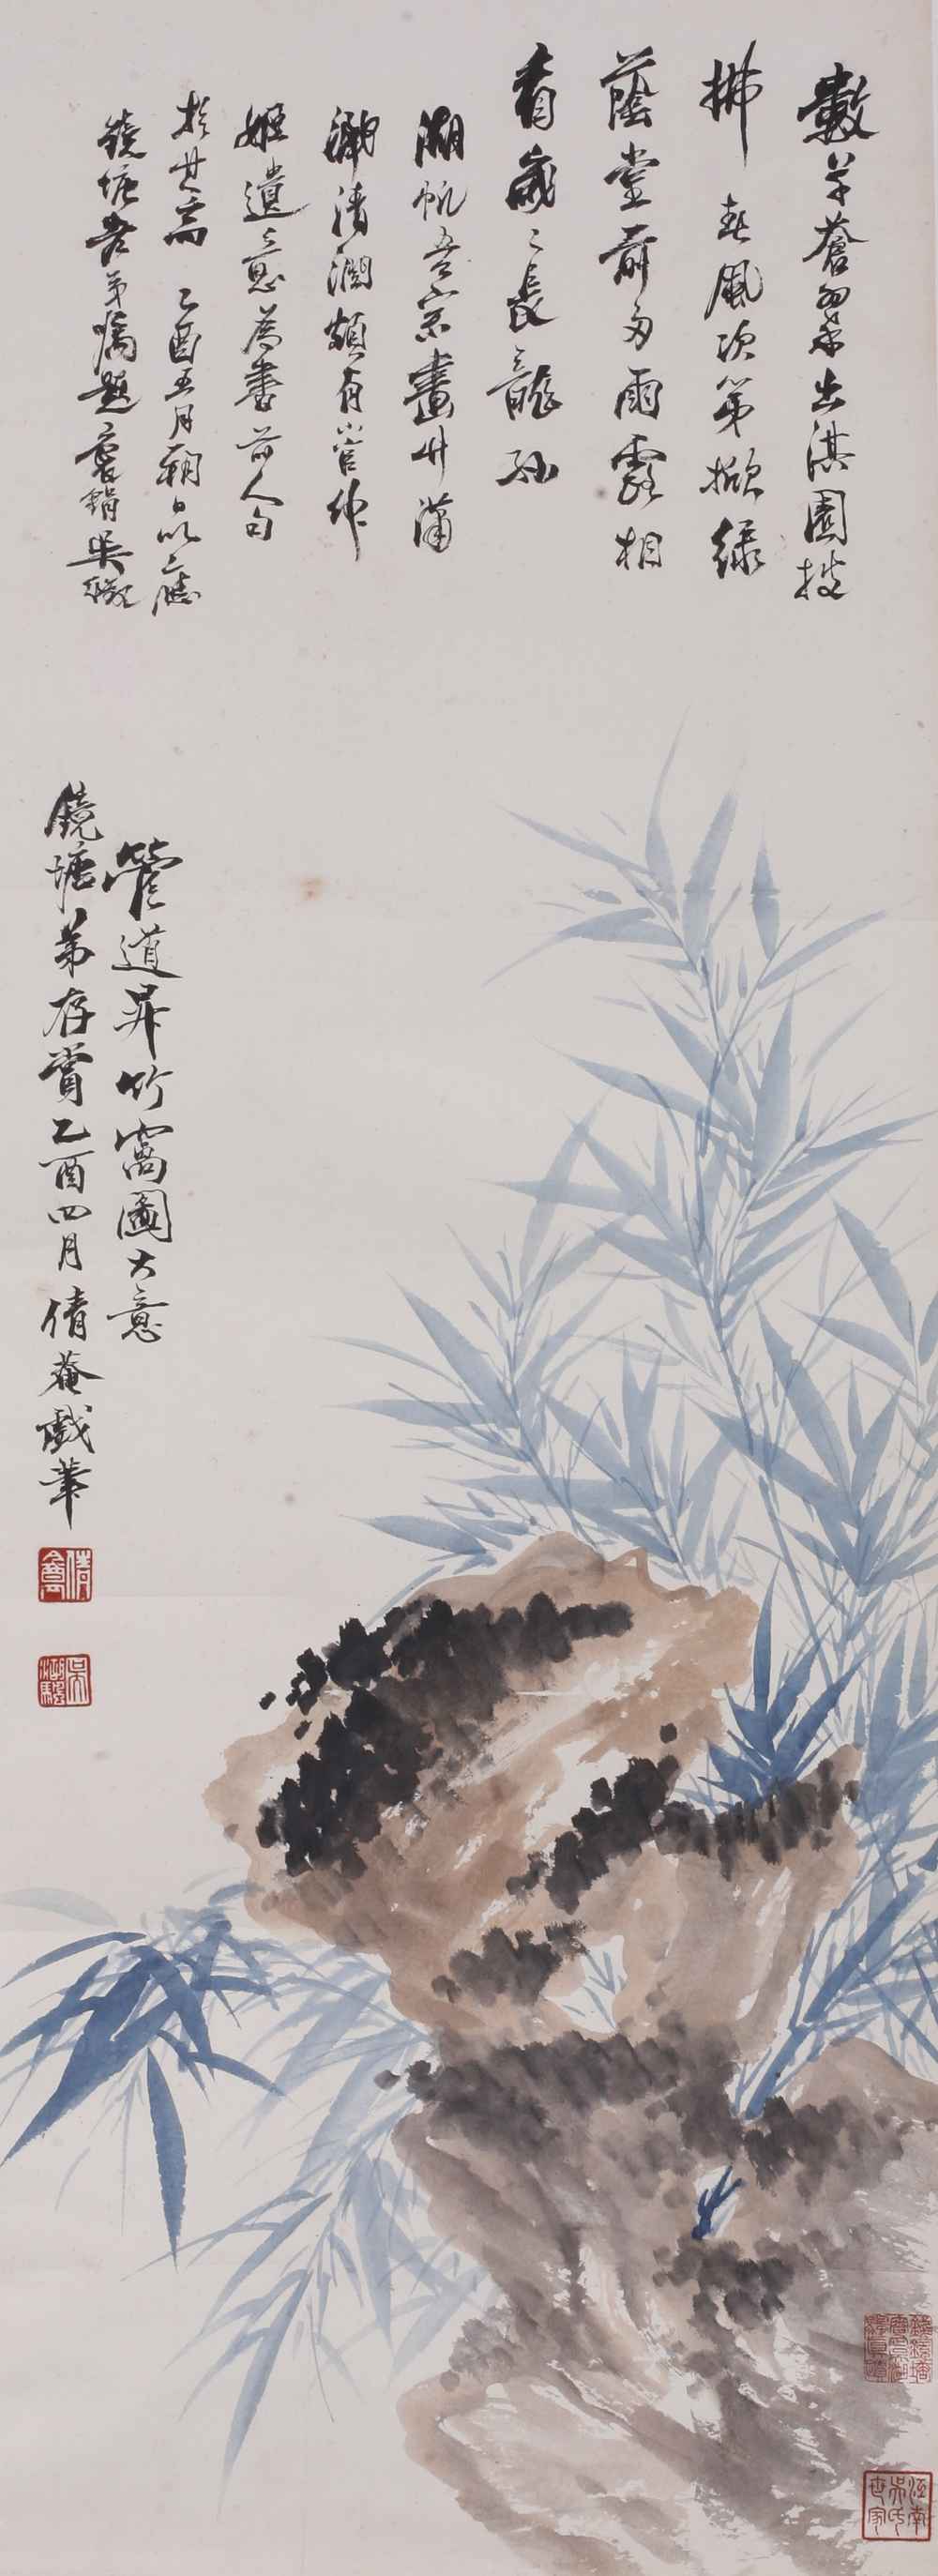 數竿蒼翠出淇園披
拂春風次第掀綠
蔭堂前多雨露相
看歲〻長龍孫
湖帆吾宗畫竹瀟
灑清潤頗有管仲
姬遺意為書前人句
於其耑 乙酉五月朔日以應
鏡塘老弟囑題 吳徵
管道昇竹窩圖大意
鏡塘弟存賞乙酉四月倩菴戲筆
倩盦
吳湖颿
江南吳氏世家